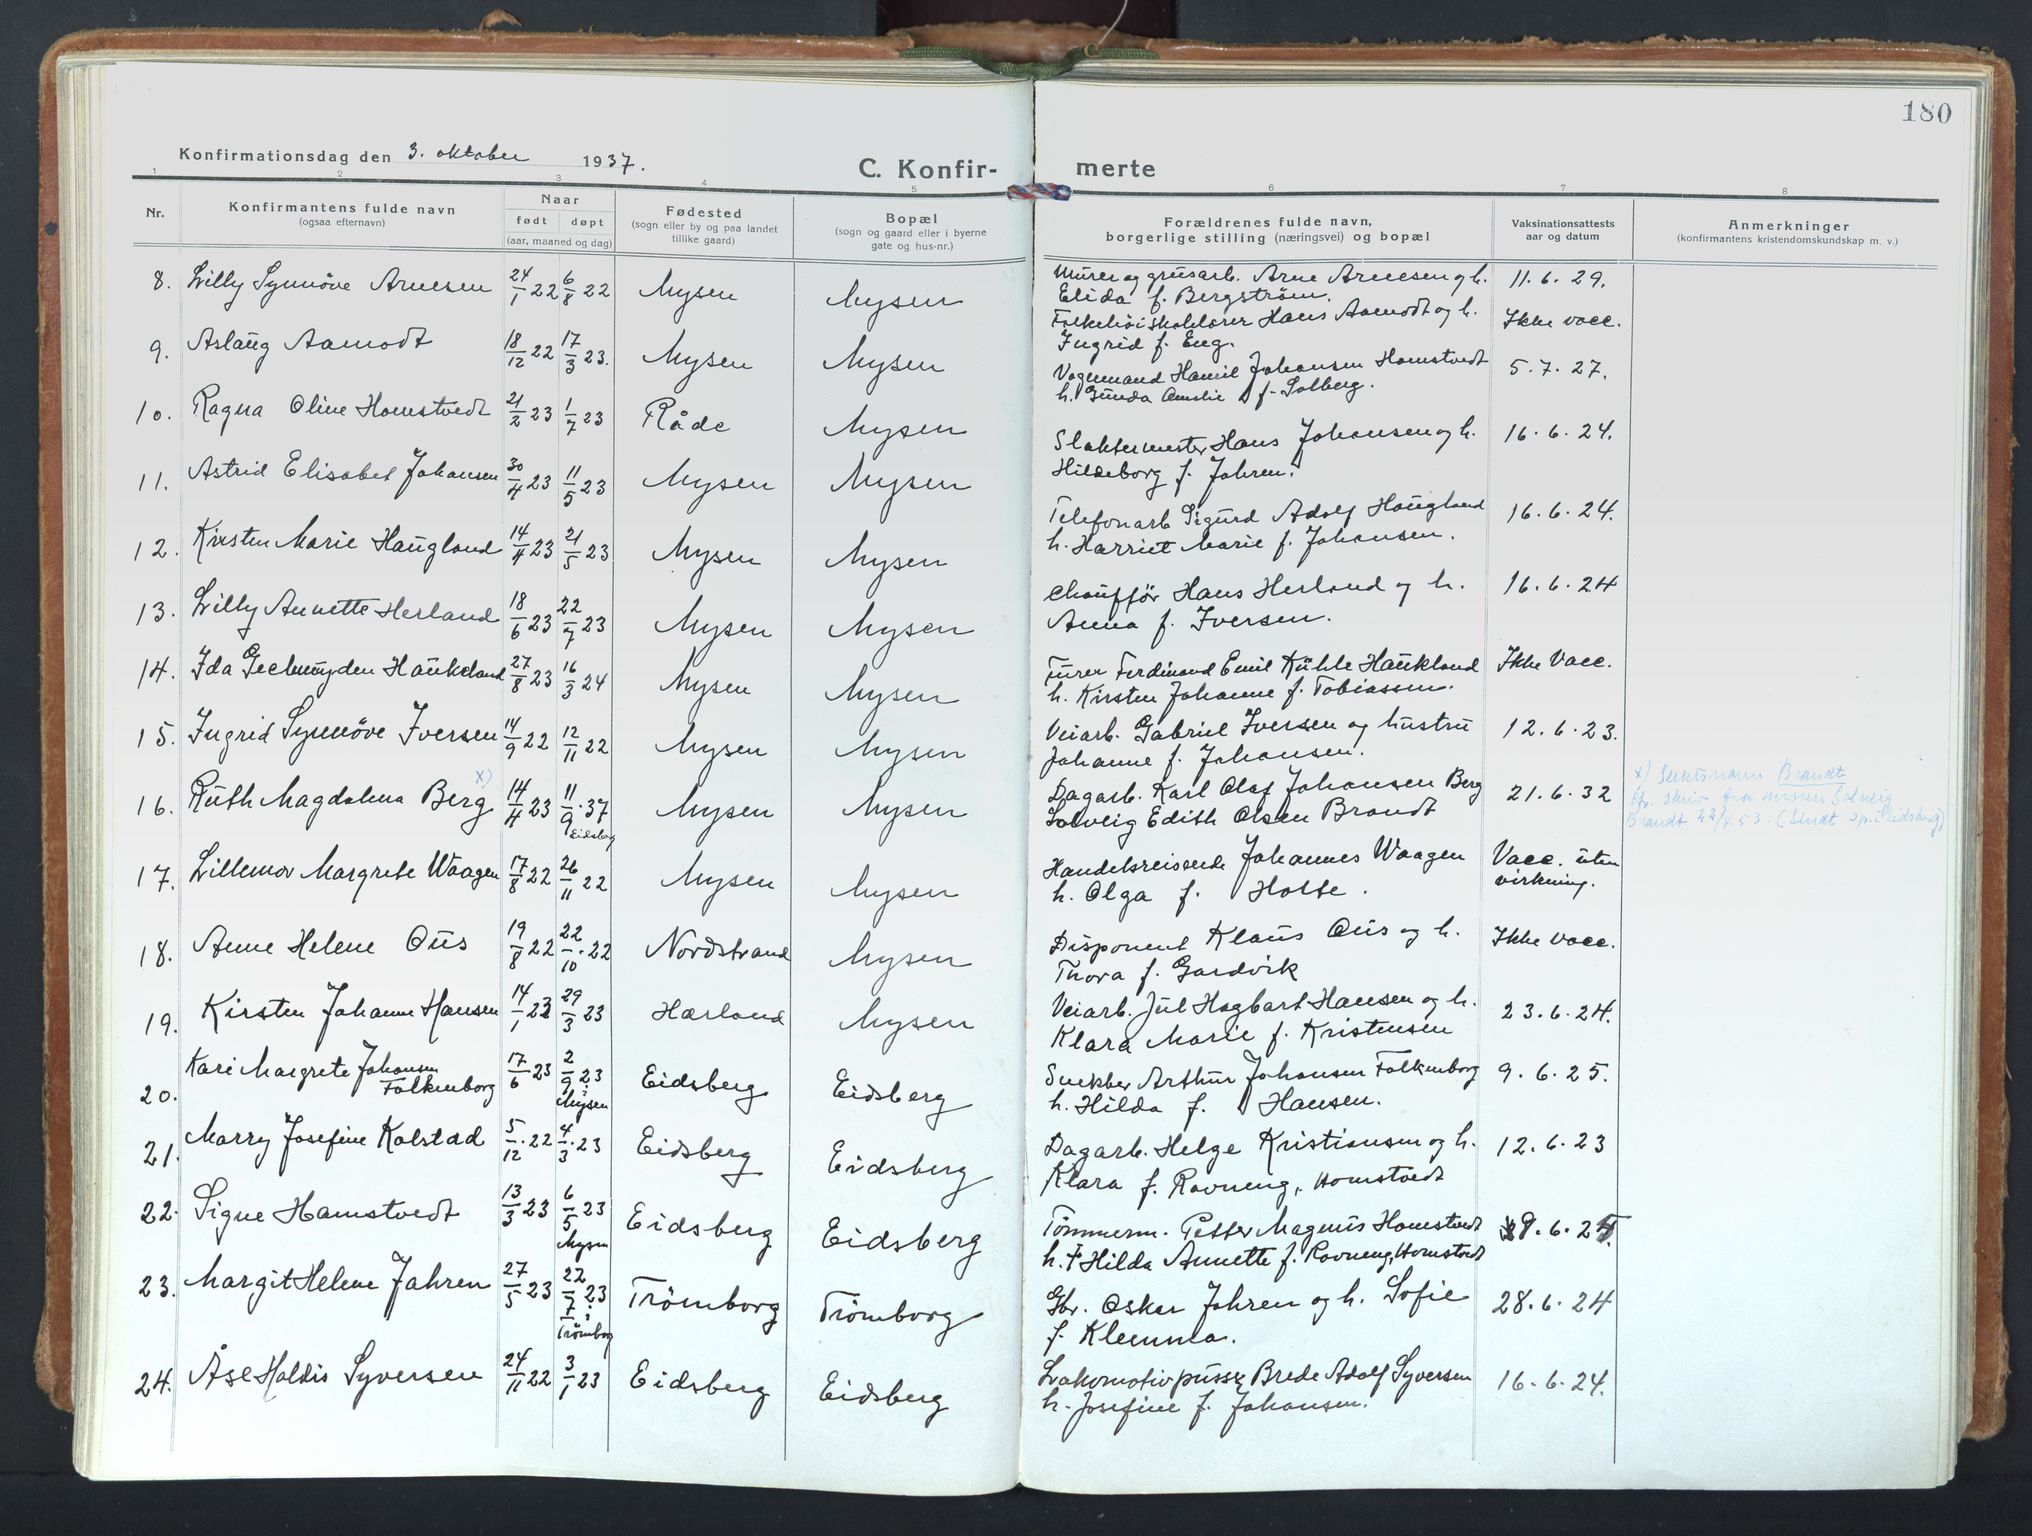 180
Konfirmationsdag den 3. oktober 1937.
C. Konfir- merte
1 2 3 4 5 6 7 8
Nr.
Konfirmantens fulde navn
(ogsaa efternavn)
Naar
født døpt
(aar, maaned og dag)
Fødested
(sogn eller by og paa landet
tillike gaard)
Bopæl
(sogn og gaard eller i byerne
gate og hus-nr.)
Forældrenes fulde navn,
borgerlige stilling (næringsvei) og bopæl
Vaksinationsattests
aar og datum
Anmerkninger
(konfirmantens kristendomskundskap m. v.)
8. Lilly Synnöve Arnesen 24/1 22 6/8 22 Mysen Mysen Murer og grusarb. Arne Arnesen og h. 11. 6. 29.
Elida f. Bergström.
9. Aslaug Aamodt 18/12 22 17/3 23. Mysen Mysen Folkehöiskolelærer Hans Aamodt og h. Ikke vacc.
Ingrid f. Eng.
10. Ragna Oline Homstvedt 21/2 23 1/7 23 Råde Mysen Vognmand Johansen Homstvedt 5. 7. 27.
h. Gunda Amelie f. Solberg.
11. Astrid Elisabet Johansen 30/4 23 11/5 23 Mysen Mysen Slaktermester Hans Johansen og h. 16. 6. 24.
Hildeborg f. Jahren.
12. Kirsten Marie Haugland 14/4 23 21/5 23 Mysen Mysen Telefonarb. Sigurd Adolf Haugland 16. 6. 24.
h. Harriet Marie f. Johansen.
13. Lilly Annette Herland 18/6 23 22/7 23 Mysen Mysen Chauffør Hans Herland og h. 16. 6. 24
Anna f. Iversen.
14. Ida Geelmuyden Haukeland 27/8 23 16/3 24 Mysen Mysen Furer Ferdinand Emil Kühle Haukland Ikke Vacc.
h. Kirsten Johanne f. Tobiassen.
15. Ingrid Synnöve Iversen 14/9 22 12/11 22 Mysen Mysen Veiarb. Gabriel Iversen og hustru 12. 6. 23.
Johanne f. Johansen.
16. Ruth Magdalena Berg x) 14/4 23 11/9. 37 Eidsberg Mysen Mysen Dagarb. Karl Olaf Johansen Berg 21. 6. 32 x) Brandt
Solveig Edith Olsen Brandt fra moren Solveig
Brandt 22/4.53.
17. Lillemor Margrete Waagen 17/8 22 26/11 22 Mysen Mysen Handelsreisende Johannes Waagen Vacc. uten
h. Olga f. Holte. virkning.
18. Anne Helene Ous 19/8 22 22/10. 22 Nordstrand Mysen Disponent Klaus Ous og h. Ikke vacc.
Thora f. Gardvik
19. Kirsten Johanne Hansen 14/1 23 29/3 23 Hærland Mysen Veiarb. Jul Hagbart Hansen og h. 23. 6. 24.
Klara Marie f. Kristensen
20. Kari Margrete Johansen Falkenborg 17/6 23 2/9 23 i Mysen Eidsberg Eidsberg Snekker Arthur Johansen Falkenborg 9. 6. 25.
h. Hilda f. Hansen.
21. Marry Josefine Kolstad 5/12. 22 4/3. 23 Eidsberg Eidsberg Dagarb. Helge Kristiansen og h. 12. 6. 23
Klara f. Ravneng, Homstvedt
22. Signe Hamstvedt 13/3 23 6/5 23 Mysen Eidsberg Eidsberg Tömmerm. Petter Magnus Homstvedt 9. 6. 25.
h. † Hilda Annette f. Ravneng, Homstvedt
23. Margit Helene Jahren 27/5 23 22/7 23 i Trömborg Trömborg Trömborg Gbr. Oskar Jahren og h. Sofie 28. 6. 24
f. Klemma.
24. Åse Haldis Syversen 24/11 22 3/1 23 Eidsberg Eidsberg Lokomotivpusser Brede Adolf Syversen 16. 6. 24.
h. Josefine f. Johansen.